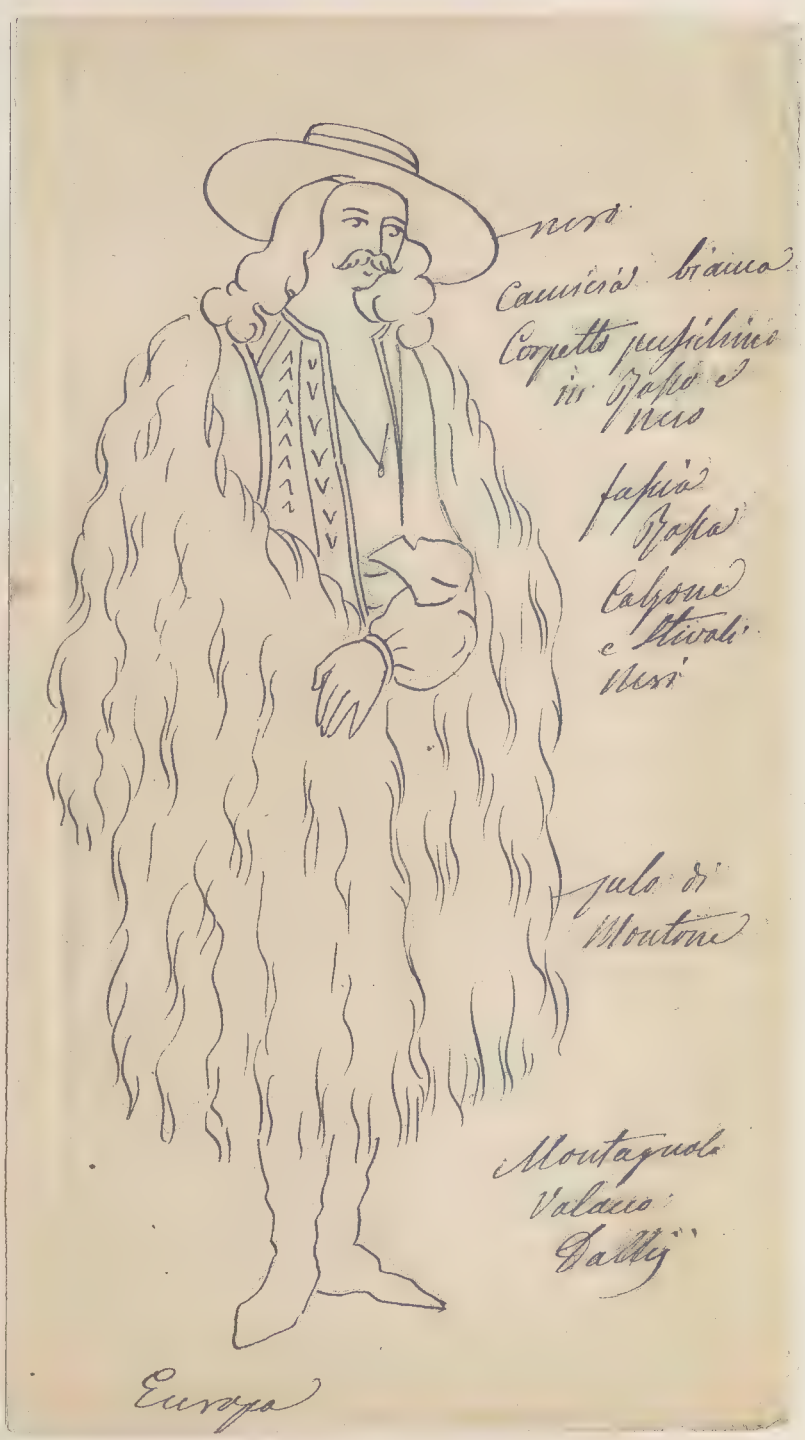 nero
Camicia bianca
Corpetto
in Rosso e
nero
fascia
Rossa
Calzone
e Stivali
Neri
pelo di
Montone
Montagnolo
Valacco
Europa